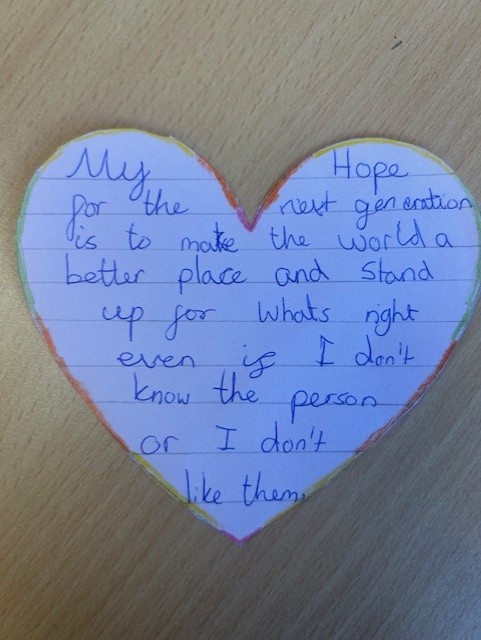 My Hope
for the next generation
is to make the world a
better place and stand
up for whats right
even if I don't
know the person
or I don't
like them.